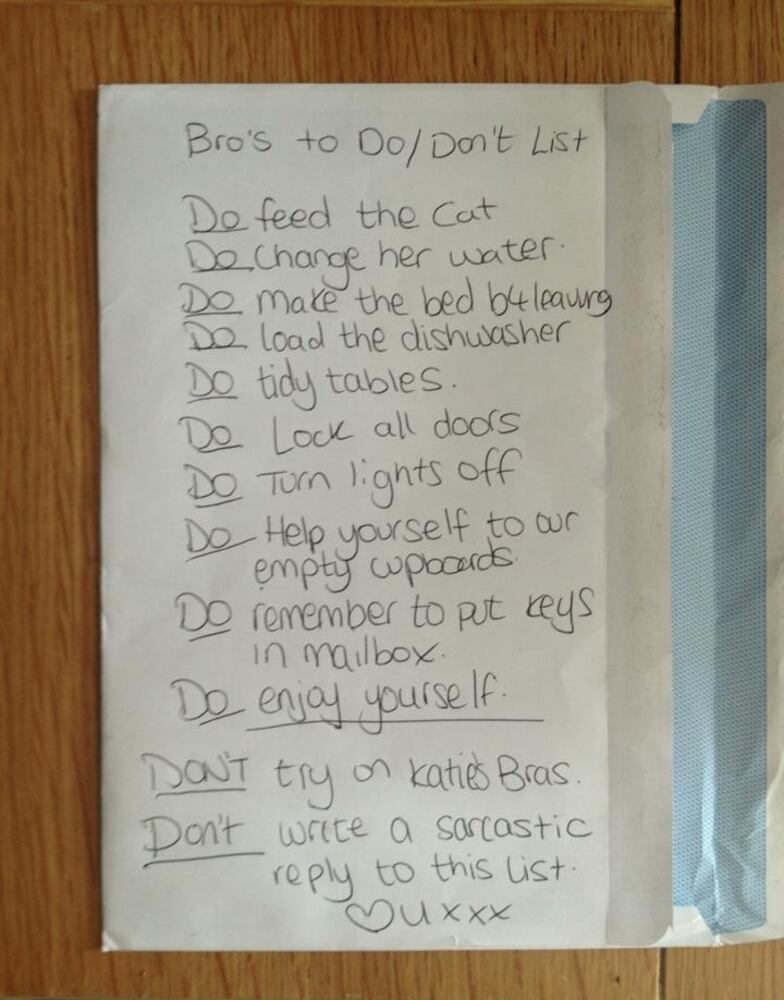 Bro's to Do/Don't List
Do feed the Cat
Do Change her water.
Do make the bed b4 leaving
Do load the dishwasher
Do tidy tables.
Do Lock all doors
Do Turn lights off
Do Help yourself to our
empty cupboards.
Do remember to put keys
in mailbox.
Do enjoy yourself.
DON'T try on Katie's Bras.
Don't write a sarcastic
reply to this List.
♡ u xxx